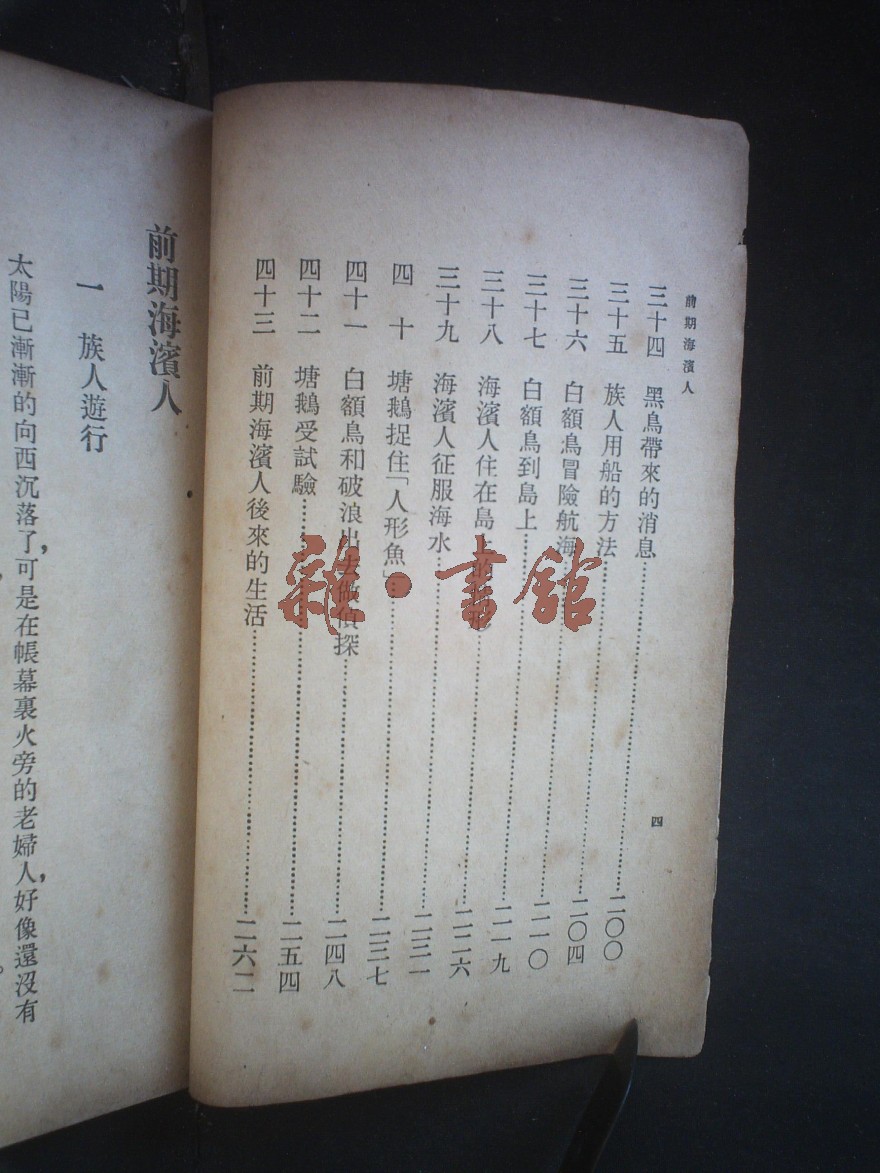 前期海濱人
三十四 黑鳥帶來的消息……二〇〇
三十五 族人用船的方法……二〇四
三十六 白額鳥冒險航海……二一〇
三十七 白額鳥到島上……二一九
三十八 海濱人住在島上的形……二二六
三十九 海濱人征服海水……二三一
四十 塘鵝捉住「人形魚」……二三七
四十一 白額鳥和破浪出去做偵探……二四八
四十二 塘鵝受試驗……二五四
四十三 前期海濱人後來的生活……二六二
四
雜·書館
前期海濱人
一 族人遊行
太陽已漸漸的向西沉落了，可是在帳幕裏火旁的老婦人，好像還沒有